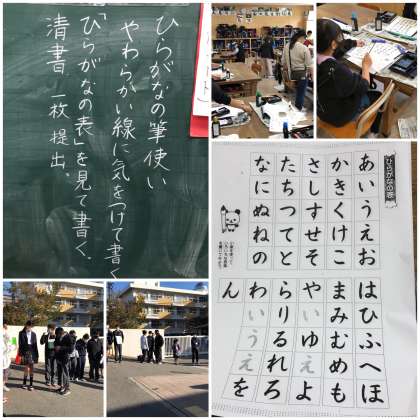 ひらがなの筆使い
やわらかい線に気をつけて書く
「ひらがなの表」を見て書く.
清書 一枚 提出.
ひらがなの表
あいうえお
かきくけこ
さしすせそ
たちつてと
なにぬねの
はひふへほ
まみむめも
やいゆえよ
らりるれろ
わいうえを
ん